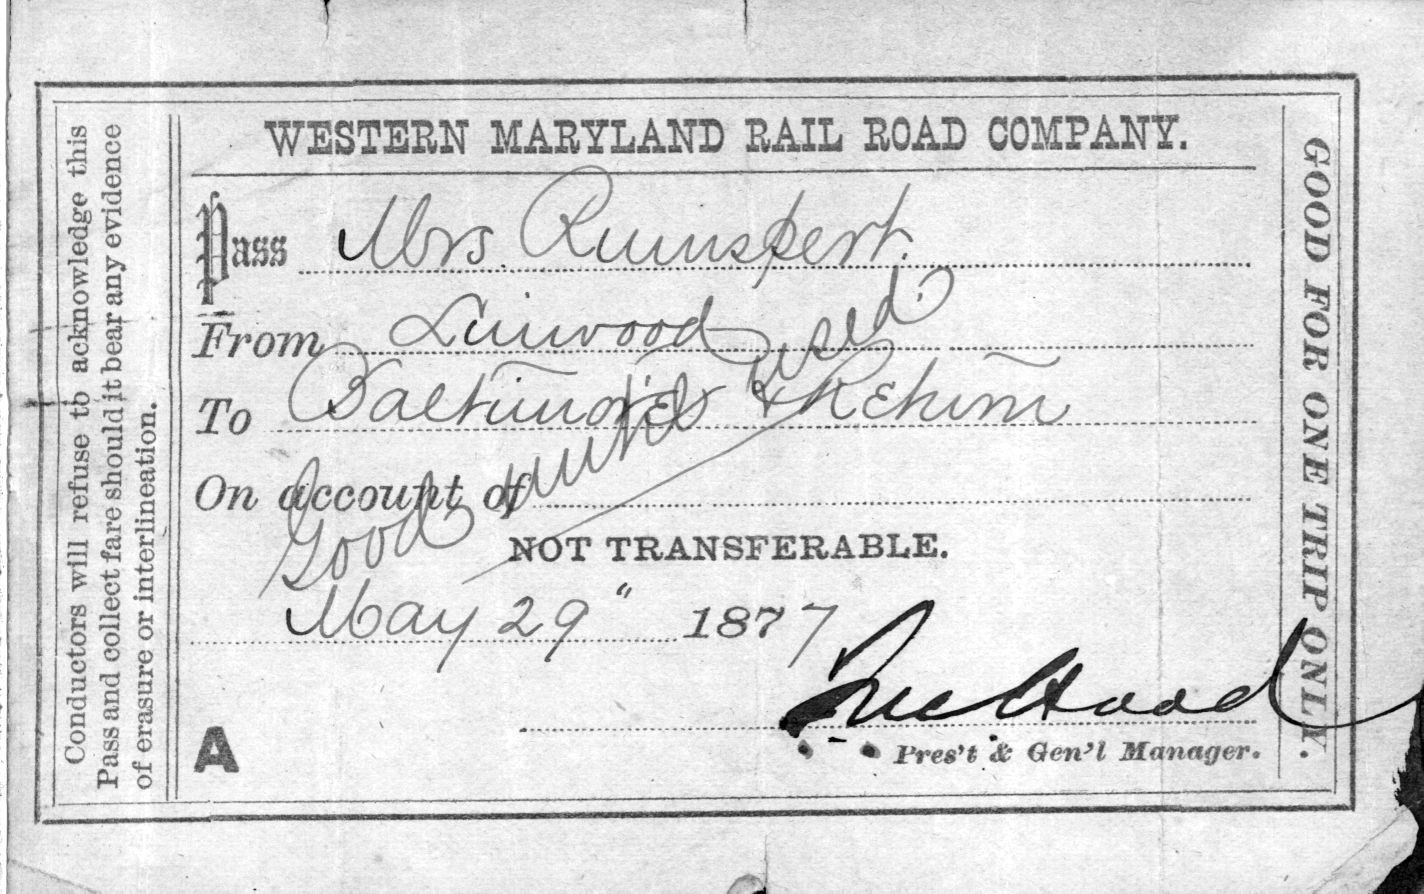 Conductors will refuse to acknowledge this
Pass and collect fare should it bear any evidence
of erasure or interlineation.
WESTERN MARYLAND RAIL ROAD COMPANY.
Pass Mrs. Rumspert.
From Linwood
To Baltimore & Return
Good until used
On account of
NOT TRANSFERABLE.
May 29" 1877
Hood
A
Pres't & Gen'l Manager.
GOOD FOR ONE TRIP ONLY.